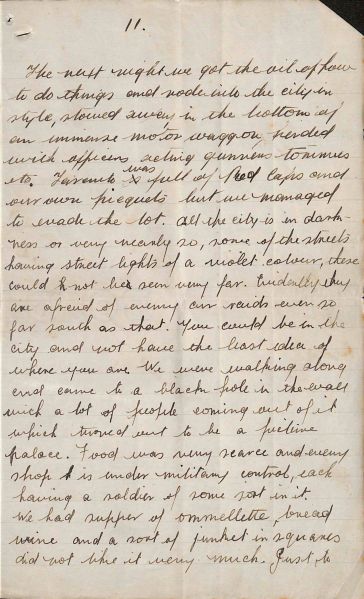 11.
The next night we got the oil of how
to do things and rode into the city in
style, stowed away in the bottom of
an immense motor waggon, herded
with officers acting gunners tommies
etc. Taranto was full of Red Caps and
our own picquets but we managed
to evade the lot. All the city is in dark-
ness or very nearly so, some of the streets
having street lights of a violet colour, these
could not be seen very far. Evidently they
are afraid of enemy air raids even so
far south as that. You could be in the
city and not have the least idea of
where you are. We were walking along
and came to a black hole in the wall
with a lot of people coming out of it
which turned out to be a picture
palace. Food was very scarce and every
shop is under military control, each
having a soldier of some sort in it.
We had supper of ommellette, bread
wine and a sort of junket in squares
did not like it very much. Just to